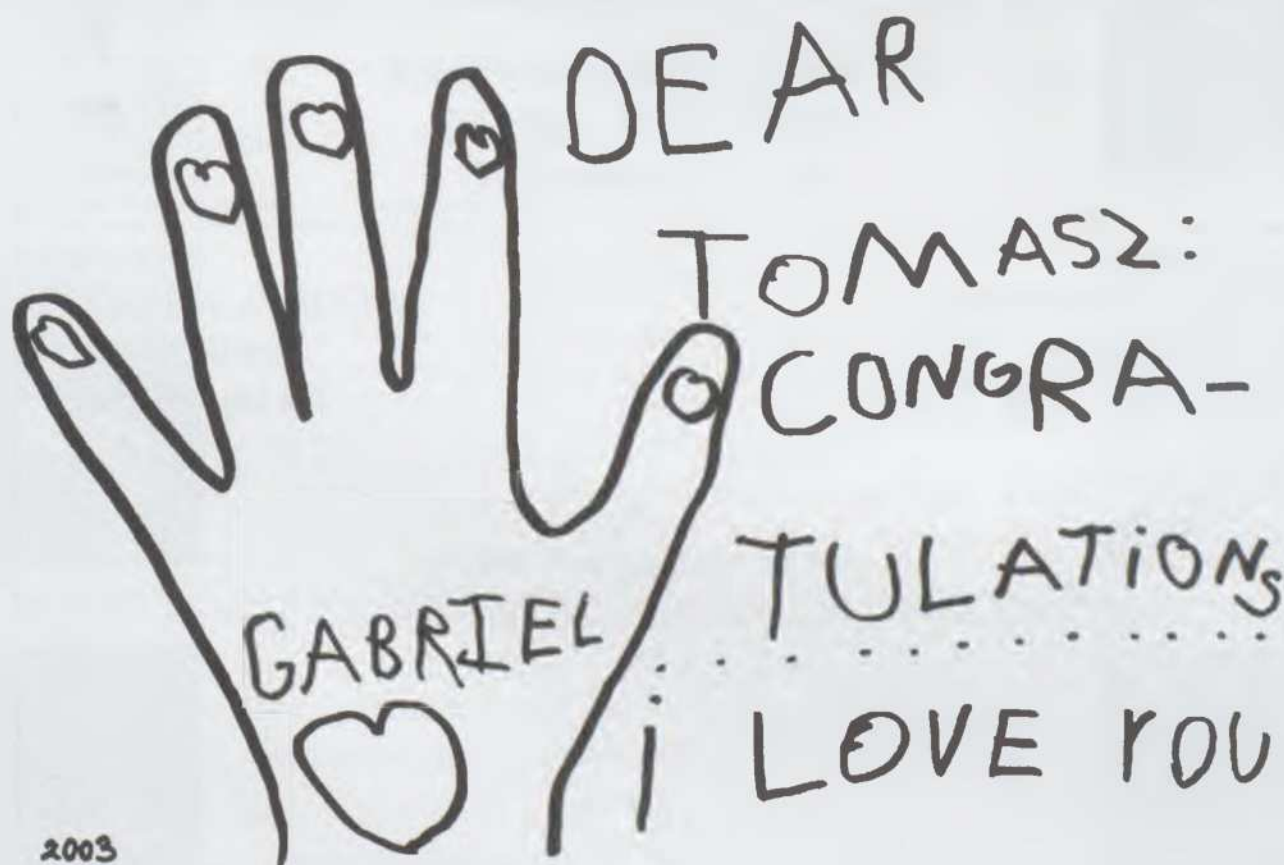 DEAR
TOMASZ:
CONGRA-
TULATIONS
I LOVE YOU
GABRIEL
2003